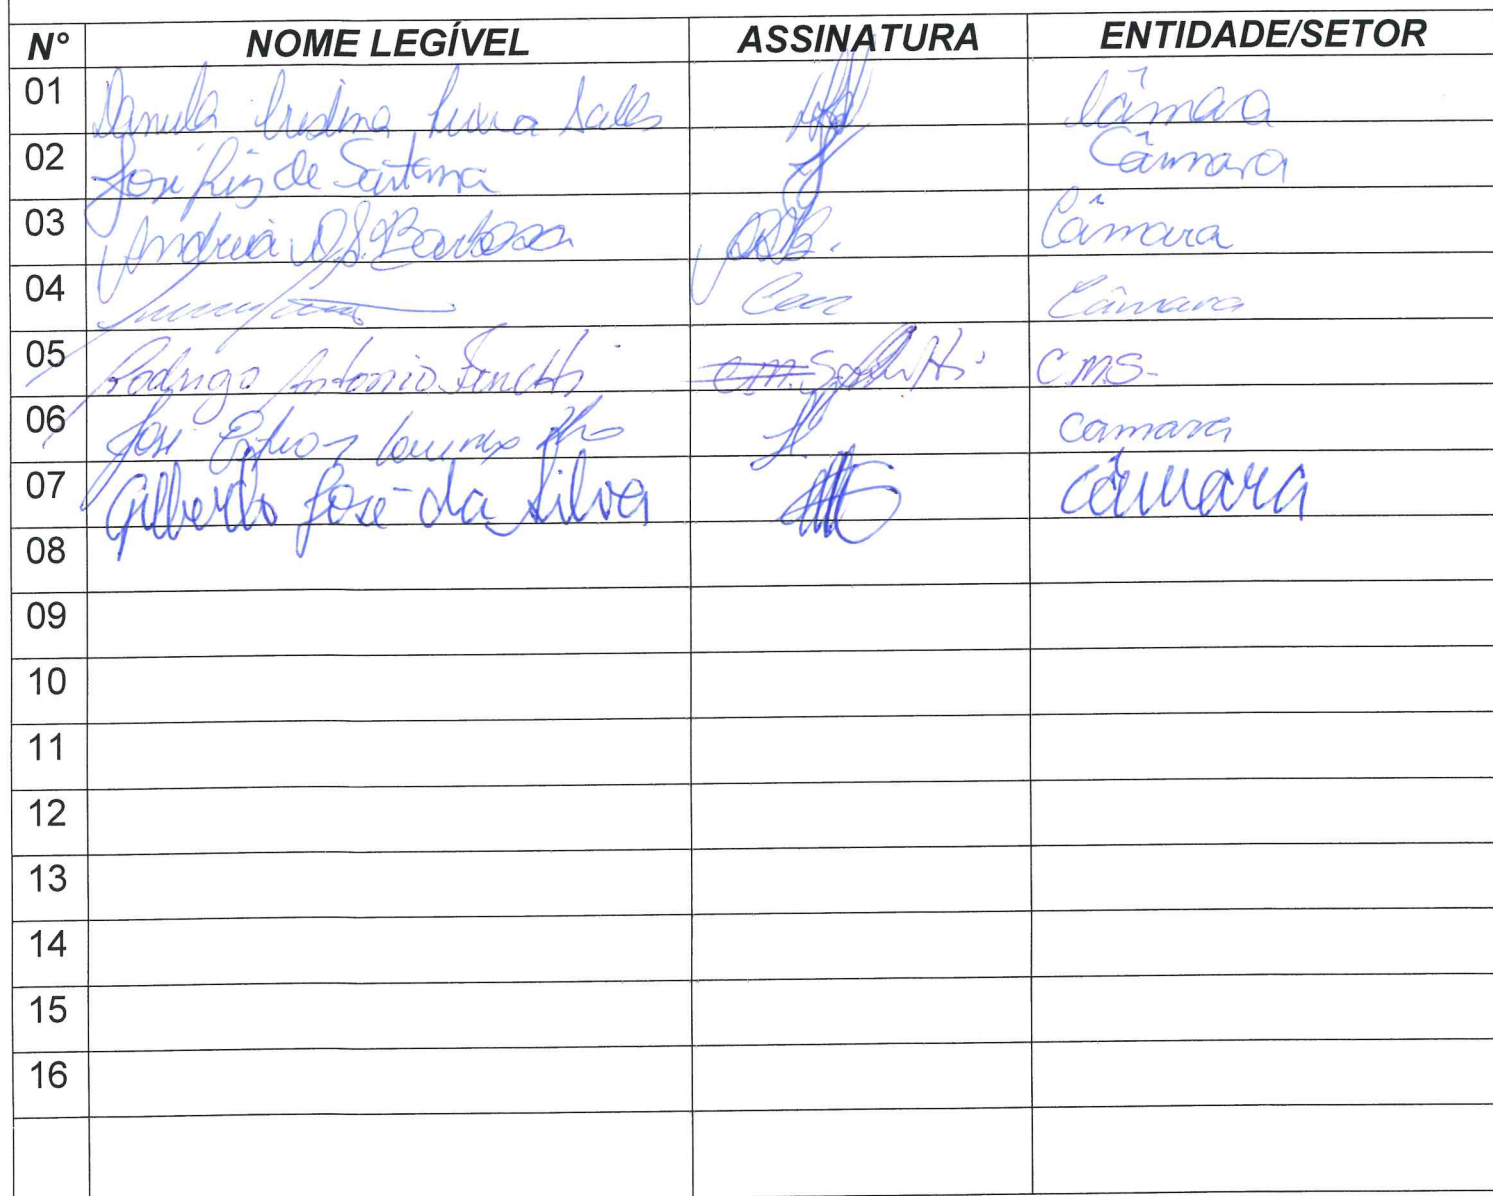 N° NOME LEGÍVEL ASSINATURA ENTIDADE/SETOR
01 Cristina Salles Câmara
02 José Luiz de Santana Câmara
03 Andreia D.S. Barbosa Câmara
04 Câmara
05 Rodrigo Antonio C.M.S.
06 José camara
07 Gilberto José da Silva câmara
08
09
10
11
12
13
14
15
16